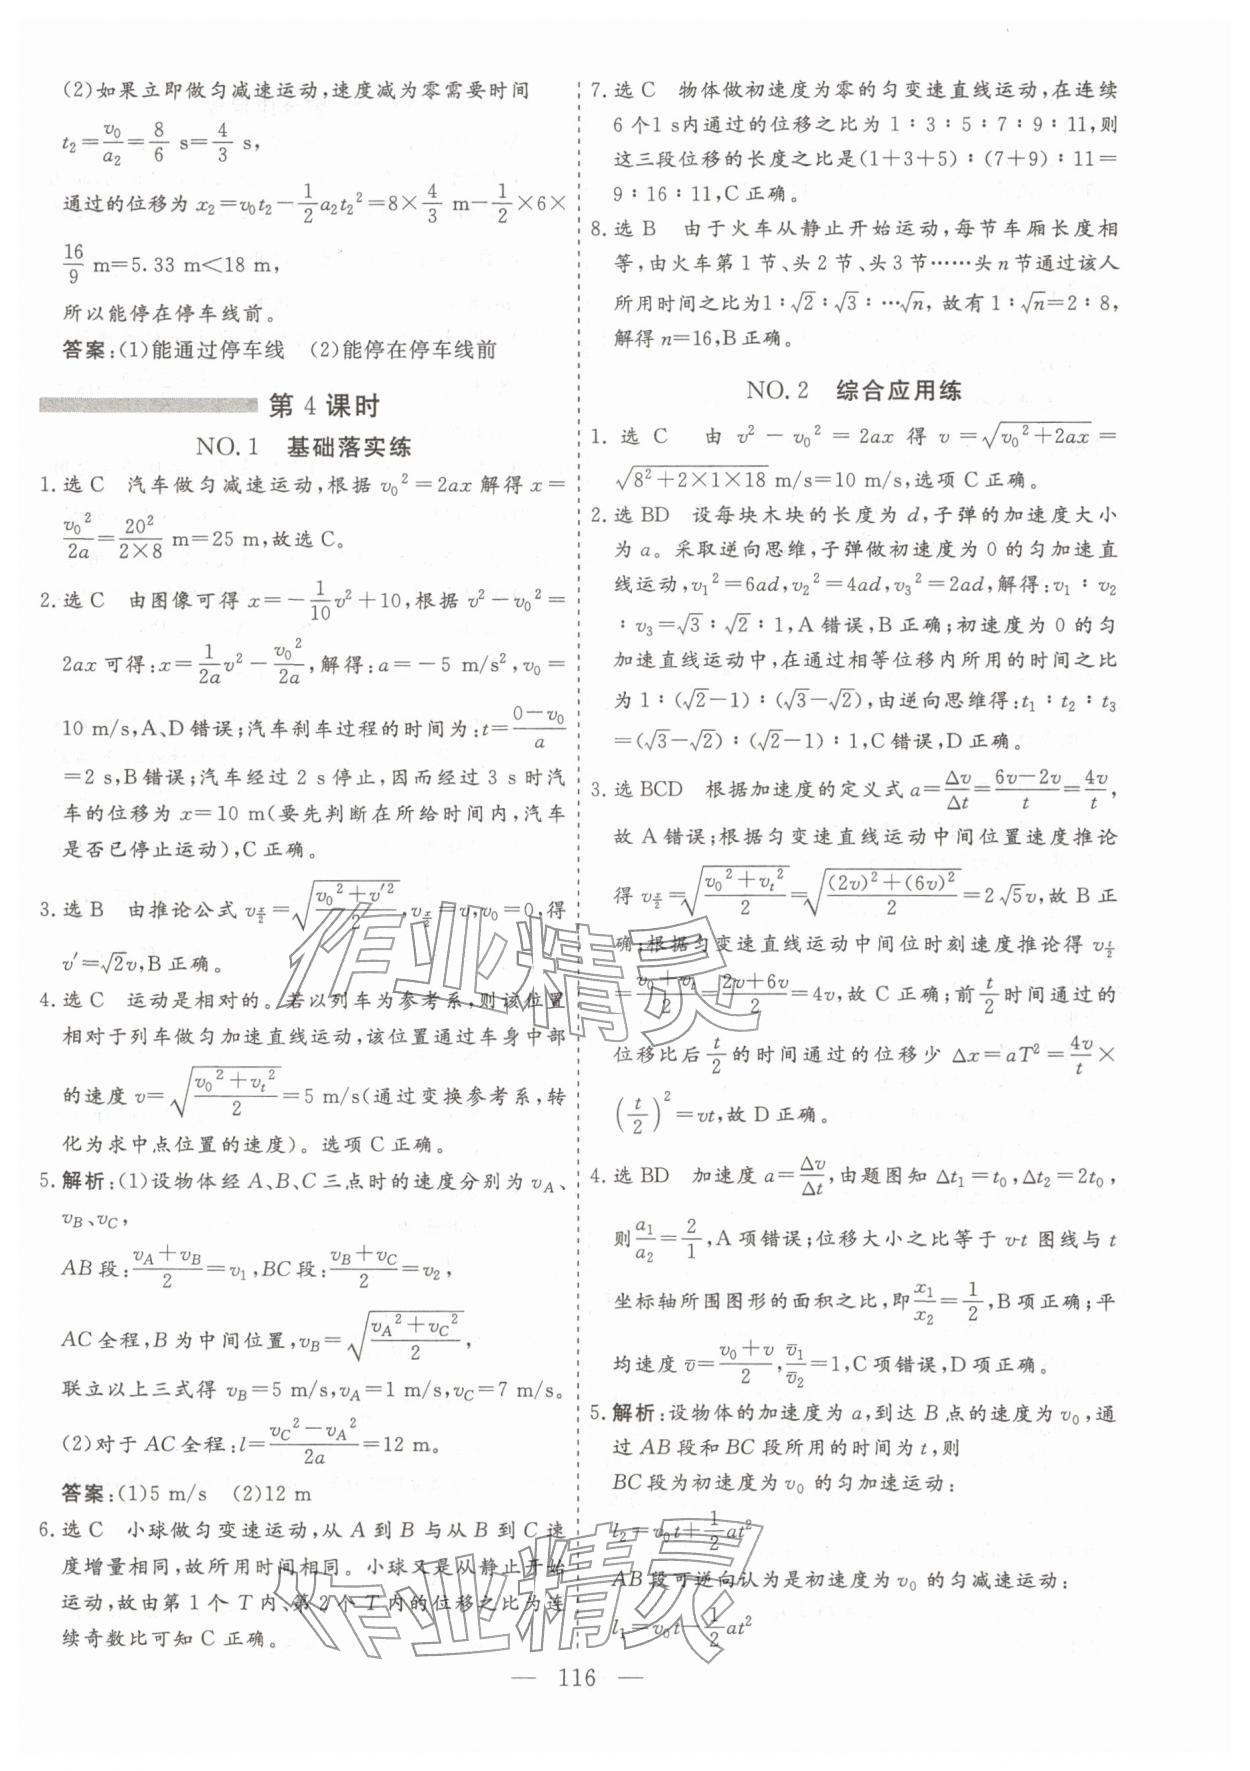 (2)如果立即做匀减速运动,速度减为零需要时间
t₂=v₀/a₂=8/6 s=4/3 s,
通过的位移为 x₂=v₀t₂-1/2 a₂t₂²=8×4/3 m-1/2×6×
16/9 m=5.33 m<18 m,
所以能停在停车线前。
答案:(1)能通过停车线 (2)能停在停车线前
第 4 课时
NO.1 基础落实练
1. 选 C 汽车做匀减速运动,根据 v₀²=2ax 解得 x=
v₀²/2a=20²/(2×8) m=25 m,故选 C。
2. 选 C 由图像可得 x=-1/10 v²+10,根据 v²-v₀²=
2ax 可得:x=1/2a v²-v₀²/2a,解得:a=-5 m/s²,v₀=
10 m/s,A、D 错误;汽车刹车过程的时间为:t=(0-v₀)/a
=2 s,B 错误;汽车经过 2 s 停止,因而经过 3 s 时汽
车的位移为 x=10 m(要先判断在所给时间内,汽车
是否已停止运动),C 正确。
3. 选 B 由推论公式 v_{x/2}=√((v₀²+v′²)/2),v_{x/2}=v,v₀=0,得
v′=√2v,B 正确。
4. 选 C 运动是相对的。若以列车为参考系,则该位置
相对于列车做匀加速直线运动,该位置通过车身中部
的速度 v=√((v₀²+vₜ²)/2)=5 m/s(通过变换参考系,转
化为求中点位置的速度)。选项 C 正确。
5. 解析:(1)设物体经 A、B、C 三点时的速度分别为 v_A、
v_B、v_C,
AB 段:(v_A+v_B)/2=v₁,BC 段:(v_B+v_C)/2=v₂,
AC 全程,B 为中间位置,v_B=√((v_A²+v_C²)/2),
联立以上三式得 v_B=5 m/s,v_A=1 m/s,v_C=7 m/s。
(2)对于 AC 全程:l=(v_C²-v_A²)/2a=12 m。
答案:(1)5 m/s (2)12 m
6. 选 C 小球做匀变速运动,从 A 到 B 与从 B 到 C 速
度增量相同,故所用时间相同。小球又是从静止开始
运动,故由第 1 个 T 内、第 2 个 T 内的位移之比为连
续奇数比可知 C 正确。
7. 选 C 物体做初速度为零的匀变速直线运动,在连续
6 个 1 s内通过的位移之比为 1∶3∶5∶7∶9∶11,则
这三段位移的长度之比是(1+3+5)∶(7+9)∶11=
9∶16∶11,C 正确。
8. 选 B 由于火车从静止开始运动,每节车厢长度相
等,由火车第 1 节、头 2 节、头 3 节……头 n 节通过该人
所用时间之比为1∶√2∶√3∶…√n, 故有 1∶√n=2∶8,
解得 n=16,B 正确。
NO.2 综合应用练
1. 选 C 由 v²-v₀²=2ax 得 v=√(v₀²+2ax)=
√(8²+2×1×18) m/s=10 m/s,选项 C 正确。
2. 选 BD 设每块木块的长度为 d,子弹的加速度大小
为 a。采取逆向思维,子弹做初速度为 0 的匀加速直
线运动,v₁²=6ad,v₂²=4ad,v₃²=2ad,解得:v₁∶v₂
∶v₃=√3∶√2∶1,A 错误,B 正确;初速度为 0 的匀
加速直线运动中,在通过相等位移内所用的时间之比
为 1∶(√2-1)∶(√3-√2),由逆向思维得:t₁∶t₂∶t₃
=(√3-√2)∶(√2-1)∶1,C 错误,D 正确。
3. 选 BCD 根据加速度的定义式 a=Δv/Δt=(6v-2v)/t=4v/t,
故 A 错误;根据匀变速直线运动中间位置速度推论
得 v_{x/2}=√((v₀²+vₜ²)/2)=√(((2v)²+(6v)²)/2)=2√5v,故 B 正
确;根据匀变速直线运动中间位时刻速度推论得 v_{t/2}
=(v₀+vₜ)/2=(2v+6v)/2=4v,故 C 正确;前 t/2 时间通过的
位移比后 t/2 的时间通过的位移少 Δx=aT²=4v/t×
(t/2)²=vt,故 D 正确。
4. 选 BD 加速度 a=Δv/Δt,由题图知 Δt₁=t₀,Δt₂=2t₀,
则a₁/a₂=2/1,A 项错误;位移大小之比等于 v-t 图线与 t
坐标轴所围图形的面积之比,即x₁/x₂=1/2,B 项正确;平
均速度 v̄=(v₀+v)/2,v̄₁/v̄₂=1,C 项错误,D 项正确。
5. 解析:设物体的加速度为 a,到达 B 点的速度为 v₀,通
过 AB 段和 BC 段所用的时间为 t,则
BC 段为初速度为 v₀ 的匀加速运动:
l₂=v₀t+1/2 at²
AB 段可逆向认为是初速度为 v₀ 的匀减速运动:
l₁=v₀t-1/2 at²
— 116 —
作业精灵
作业精灵